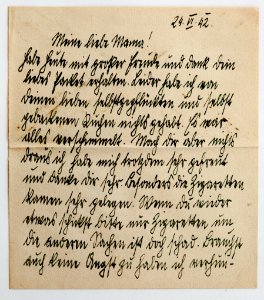 24. VI 42.
Meine liebe Mama!
Habe heute mit großer Freude und Dank dein
liebes Packet erhalten. Leider habe ich von
deinen lieben selbstgepflückten und selbst
gebackenen Kuchen nichts gehabt. Es war
alles verschimmelt. Mach dir aber nichts
draus ich, habe mich trotzdem sehr gefreut
und danke dir sehr besonders die Zigaretten
kamen sehr gelegen. Wenn du wieder
etwas schickst bitte nur Zigaretten um
die anderen Sachen ist doch schad. Brauchst
auch keine Angst zu haben ich verhun-